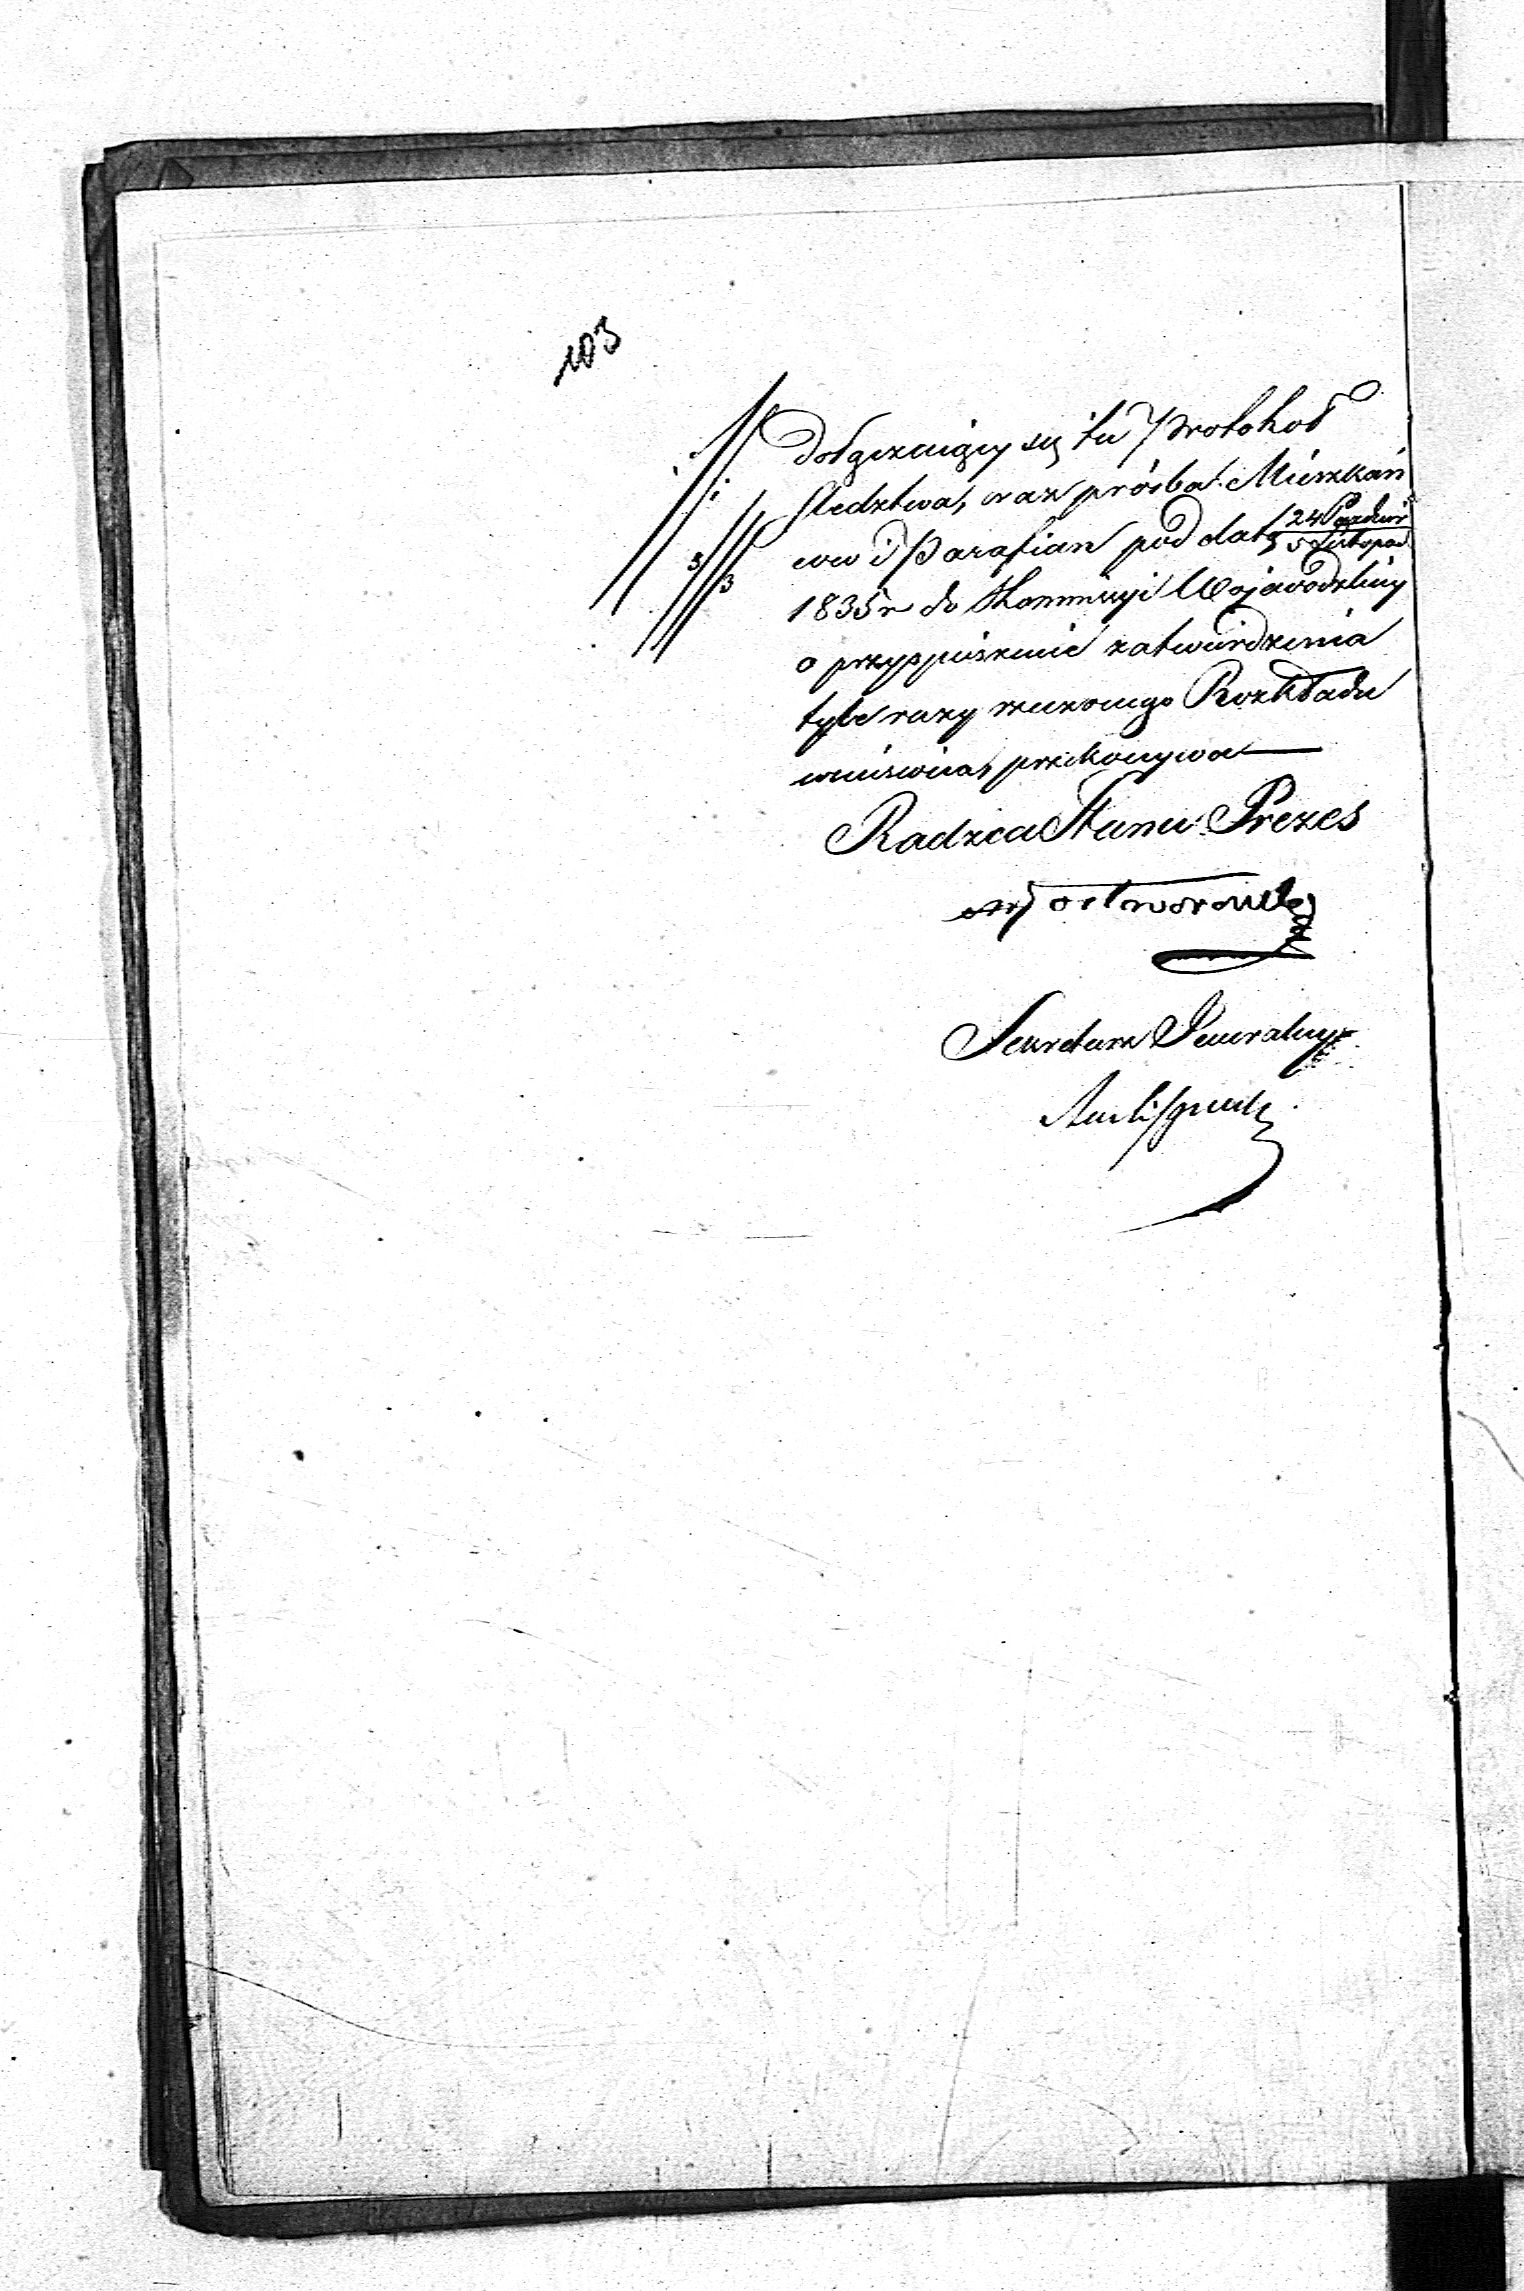 103
dołączaiący się tu Protokoł
śledztwa, oraz prośba Mieszkań
ców i Parafian pod datą 24 Paździer / 5 Listopad
1835 r do Kommissyi Wojewodzkiey
o przyspieszenie zatwierdzenia
tyle razy rzeczonego Rozkładu
wniesiona, przekonywa
Radzca Stanu Prezes
Sekretarz Generalny